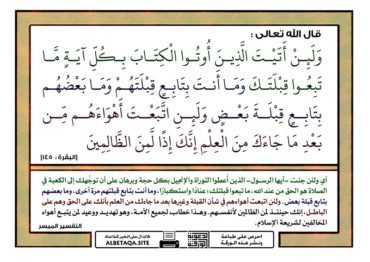 قال الله تعالى :
وَلَئِنْ أَتَيْتَ الَّذِينَ أُوتُوا الْكِتَابَ بِكُلِّ آيَةٍ مَّا
تَبِعُوا قِبْلَتَكَ وَمَا أَنتَ بِتَابِعٍ قِبْلَتَهُمْ وَمَا بَعْضُهُم
بِتَابِعٍ قِبْلَةَ بَعْضٍ وَلَئِنِ اتَّبَعْتَ أَهْوَاءَهُم مِّن
بَعْدِ مَا جَاءَكَ مِنَ الْعِلْمِ إِنَّكَ إِذًا لَّمِنَ الظَّالِمِينَ
[البقرة : ١٤٥]
أي ولئن جئت -أيها الرسول- الذين أُعطوا التوراة والإنجيل بكل حجة وبرهان على أن توجُّهك إلى الكعبة في
الصلاة هو الحق من عند الله، ما تبعوا قبلتك؛ عنادًا واستكبارًا، وما أنت بتابع قبلتهم مرة أخرى، وما بعضهم
بتابع قبلة بعض. ولئن اتبعت أهواءهم في شأن القبلة وغيرها بعد ما جاءك من العلم بأنك على الحق وهم على
الباطل، إنك حينئذ لمن الظالمين لأنفسهم. وهذا خطاب لجميع الأمة، وهو تهديد ووعيد لمن يتبع أهواء
المخالفين لشريعة الإسلام.
التفسير الميسر
احرص على طباعة
ونشر هذه الورقة
فالدال على الخير كفاعله
ALBETAQA.SITE